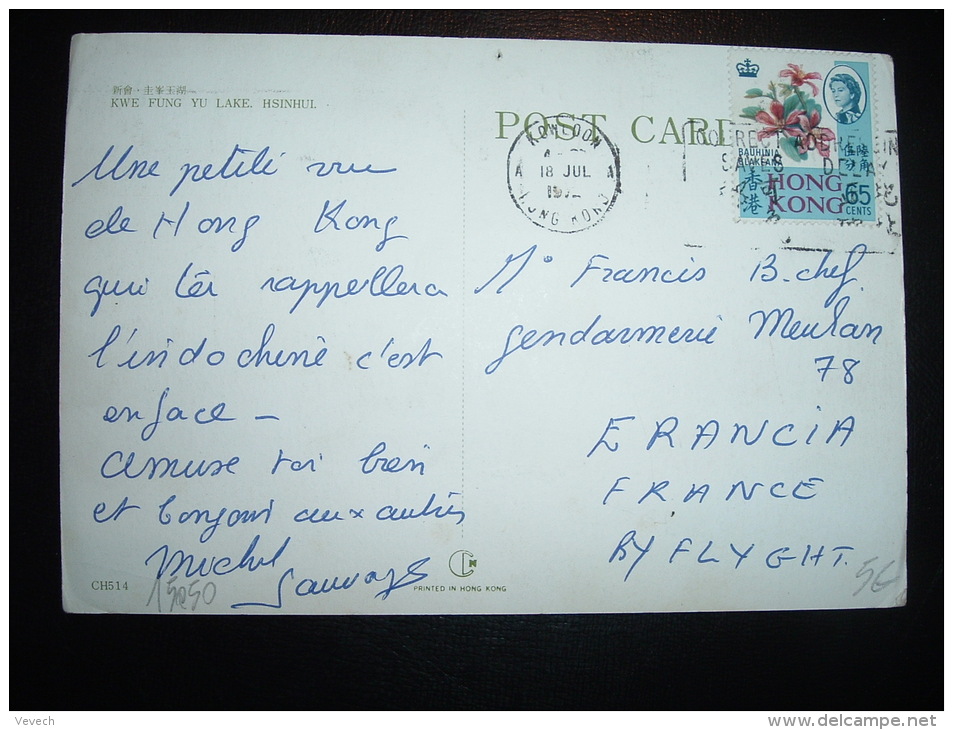 新會·圭峯玉湖
KWE FUNG YU LAKE. HSINHUI.
POST CARD
Une petite vue
de Hong Kong
qui te rappellera
l'indochine c'est
en face —
amuse toi bien
et bonjour aux autres
Michel
Sauvage
CH514
15e50
KOWLOON
A A
18 JUL
HONG KONG
CORRECT ADDRESSING
SAVES DELAY
BAUHINIA
BLAKEANA
伍陸
分角
香港
HONG
KONG
65
CENTS
Mo Francis B.chef
gendarmerie Meulan
78
FRANCIA
FRANCE
BY FLYGHT.
CN
PRINTED IN HONG KONG
5€
Vevech
www.delcampe.net